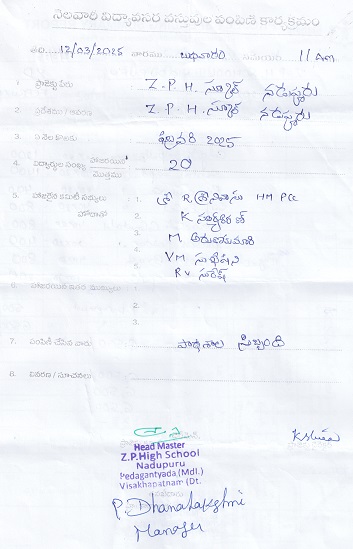 నెలవారి విద్యావసర వస్తువుల పంపిణీ కార్యక్రమం
తేది. 12/03/2025 వారము బుధవారం సమయం 11 Am
1. ప్రాజెక్టు పేరు Z.P.H. స్కూల్ నడుపూరు
2. ప్రదేశము / వివరణ Z.P.H. స్కూల్ నడుపూరు
3. ఏ నెల కొరకు ఫిబ్రవరి 2025
4. విద్యార్థుల సంఖ్య హాజరయిన 20
మొత్తము
5. హాజరైన కమిటీ సభ్యులు : 1. శ్రీ R. శ్రీనివాసు HM PCC
హోదాతో 2. K సూర్యకిరణ్
3. M. అరుణకుమారి
4. VM సుభాషిని
5. RV సురేష్
6. హాజరయిన ఇతర సభ్యులు : 1.
2.
3.
7. పంపిణీ చేసిన వారు పాఠశాల సిబ్బంది
8. వివరణ / సూచనలు
Head Master
Z.P.High School
Nadupuru
Pedagantyada (Mdl.)
Visakhapatnam (Dt.
P. Dhanalakshmi
Manager